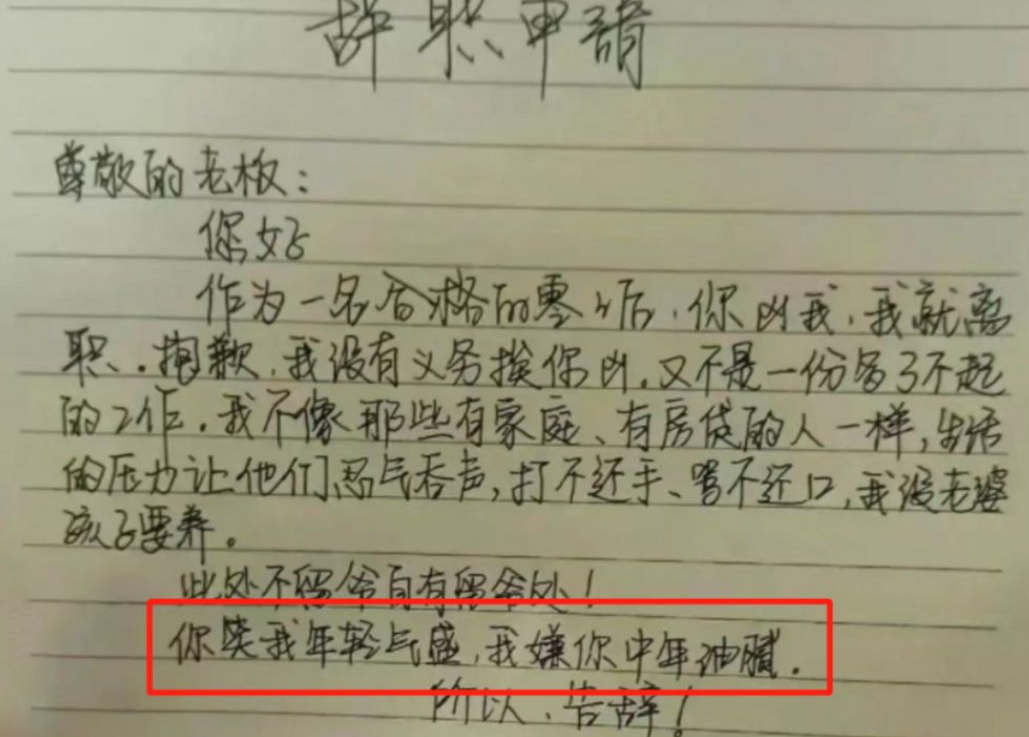 辞职申请
尊敬的老板：
您好
作为一名合格的零0后，你凶我，我就离
职。抱歉，我没有义务挨你凶，又不是一份多了不起
的工作。我不像那些有家庭、有房贷的人一样，生活
的压力让他们忍气吞声，打不还手、骂不还口，我没老婆
孩子要养。
此处不留爷自有留爷处！
你笑我年轻气盛，我嫌你中年油腻。
所以、告辞！